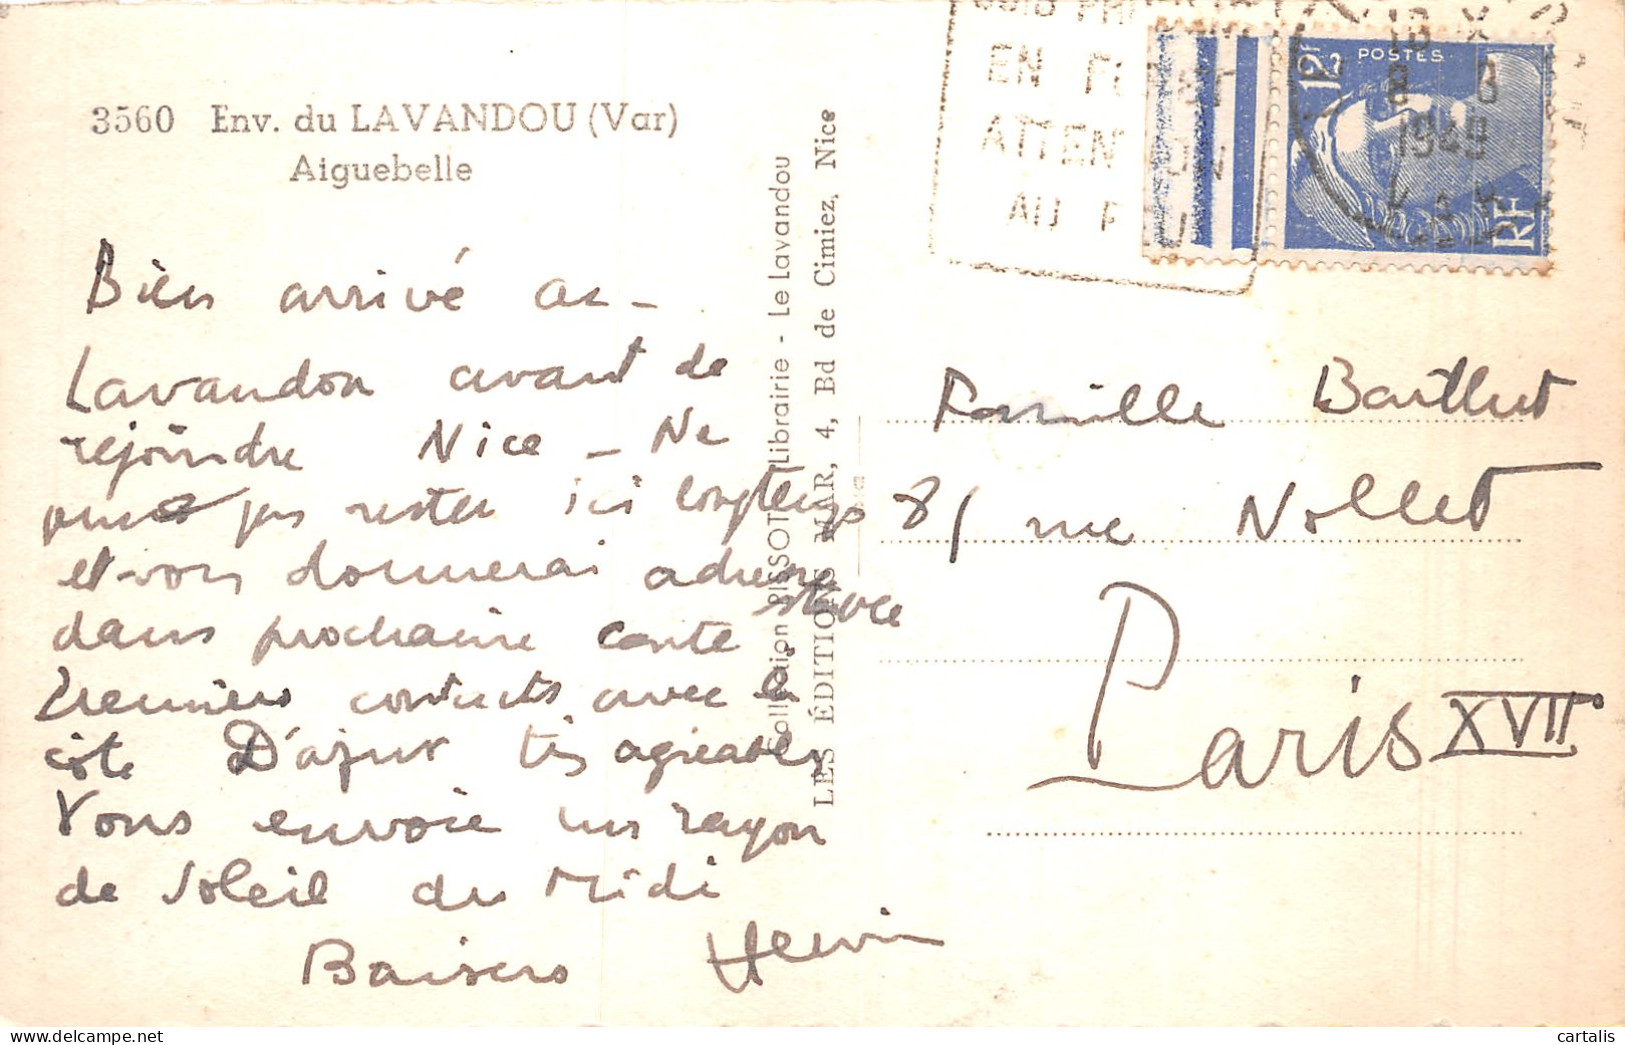 3560 Env. du LAVANDOU (Var)
Aiguebelle
Bien arrivé au
Lavandou avant de
rejoindre Nice - Ne
pense pas rester ici longtemps
et vous donnerai adresse
dans prochaine carte
Premiers contacts avec la
côte D'azur très agréables
Vous envoie un rayon
de Soleil du Midi
Baisers
Collection PISSOT Librairie - Le Lavandou
LES ÉDITIONS MAR, 4, Bd de Cimiez, Nice
EN FORET
ATTENTION
AU FEU
12F
POSTES
RF
1949
VAR
Famille
81 rue Nollet
Paris XVII°
cartalis